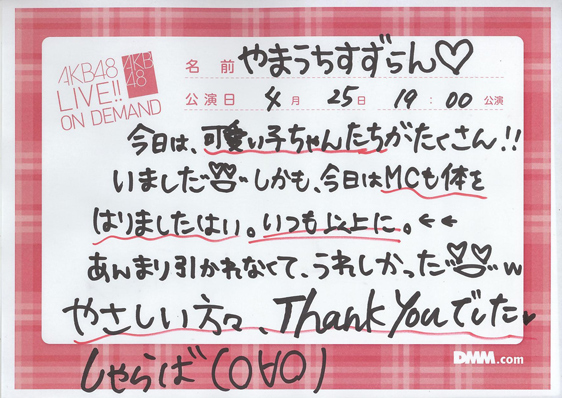 AKB48
LIVE!!
ON DEMAND
AKB
48
名前 やまうちすずらん♡
公演日 4月 25日 19:00 公演
今日は、可愛い子ちゃんたちがたくさん!!
いました しかも、今日はMCも体を
はりましたはい。いつも以上に。←←
あんまり引かれなくて、うれしかった w
やさしい方々、Thank Youでした♥
しゃらば(O∀O)
DMM.com